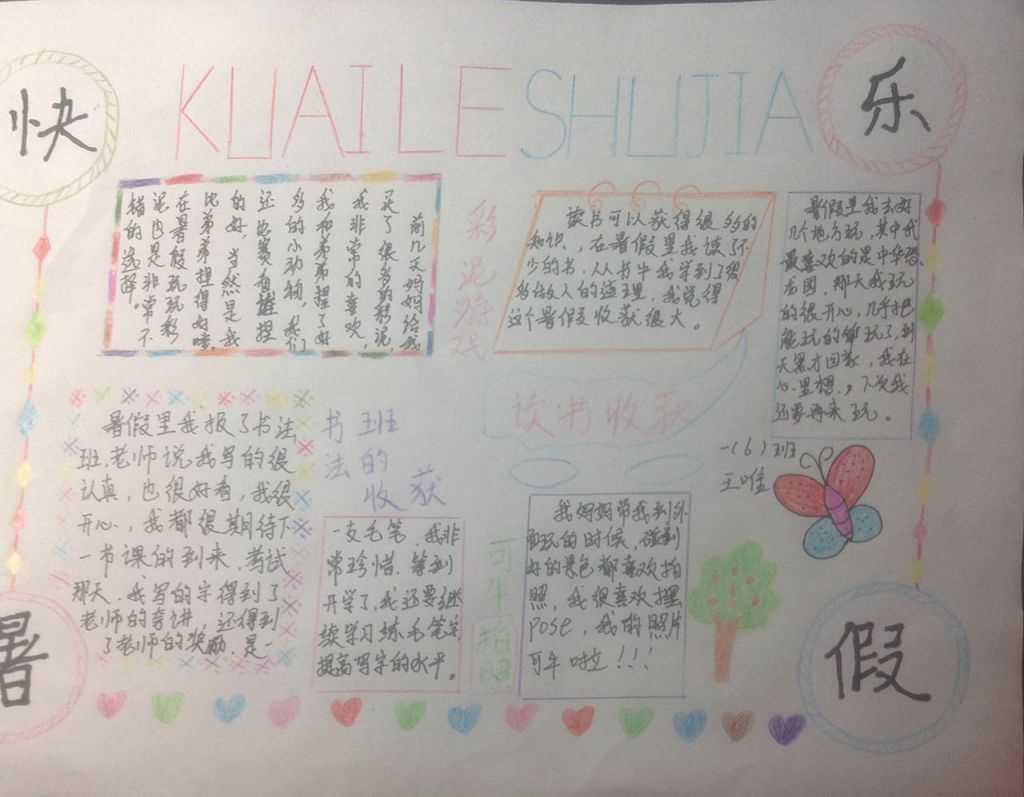 快
KUAILE SHUJIA
乐
前几天妈妈给我
买了很多的彩泥
我非常的喜欢,
我和弟弟捏了好
多的小动物,我们
还比赛看谁捏
的好,当然是我
比弟弟捏得好喽,
在暑假玩玩彩
泥也是非常不
错的选择。
彩泥游戏
读书可以获得很多的
知识,在暑假里我读了不
少的书,从书中我学到了很
多做人的道理,我觉得
这个暑假收获很大。
读书收获
暑假里我去好
几个地方玩,其中我
最喜欢的是中华恐
龙园,那天我玩
的很开心,几乎把
能玩的都玩了,到
天黑才回家,我在
心里想,下次我
还要再来玩。
一(6)班
王唯
暑假里我报了书法
班,老师说我写的很
认真,也很好看,我很
开心,我都很期待下
一书课的到来,考试
那天,我写的字得到了
老师的夸讲,还得到
了老师的奖励,是一
书班
法的
收获
一支毛笔,我非
常珍惜,等到
开学了,我还要继
续学习练毛笔字
提高写字的水平。
可牛拍照
我妈妈带我到外
面玩的时候,碰到
好的景色都喜欢拍
照,我很喜欢摆
POSE,我的照片
可牛啦!!!
暑
假